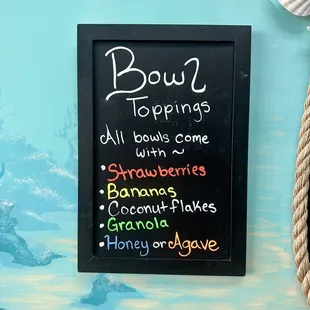 Bowl
Toppings
All bowls come
with ~
• Strawberries
• Bananas
• Coconut flakes
• Granola
• Honey or Agave